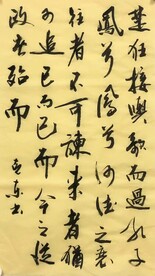 楚狂接輿歌而過孔子
鳳兮鳳兮何德之衰
往者不可諫来者猶
可追已而已而今之從
政者殆而 东书